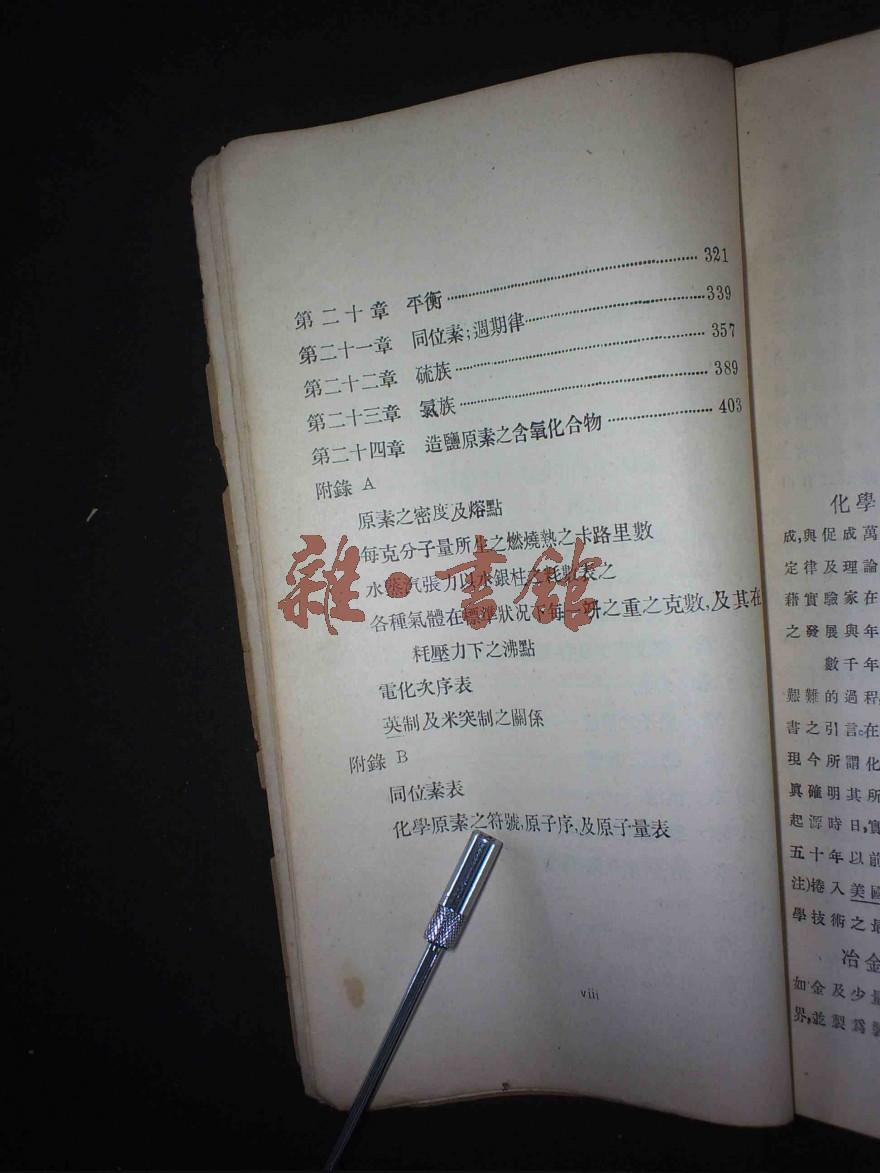 第二十章 平衡 321
第二十一章 同位素;週期律 339
第二十二章 硫族 357
第二十三章 氮族 389
第二十四章 造鹽原素之含氧化合物 403
附錄 A
原素之密度及熔點
每克分子量所生之燃燒熱之卡路里數
水蒸汽張力以水銀柱之粍數表之
各種氣體在標準狀況下每一竔之重之克數,及其在
粍壓力下之沸點
電化次序表
英制及米突制之關係
附錄 B
同位素表
化學原素之符號,原子序,及原子量表
viii
雜·書館
化學
成,與促成萬
定律及理論
藉實驗家在
之發展與年
數千年
艱難的過程
書之引言。在
現今所謂化
眞確明其所
起源時日,實
五十年以前
注)捲入美國
學技術之
冶金
如金及少量
界,並製爲